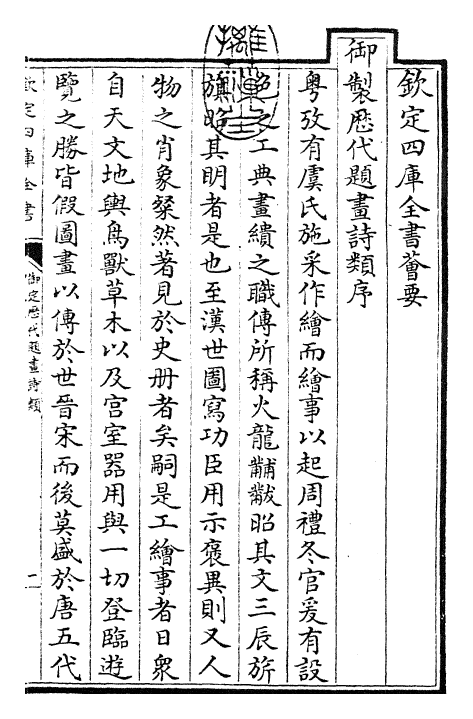 欽定四庫全書薈要
御製歴代題畫詩類序
粤攷有虞氏施采作繪而繪事以起周禮冬官爰有設
色之工典畫繢之職傳所稱火龍黼黻昭其文三辰旂
旗昭其明者是也至漢世圖寫功臣用示褒異則又人
物之肖象粲然著見於史册者矣嗣是工繪事者日衆
自天文地輿鳥獸草木以及宫室器用與一切登臨遊
覽之勝皆假圖畫以傳於世晉宋而後莫盛於唐五代
欽定四庫全書
御定歴代題畫詩類